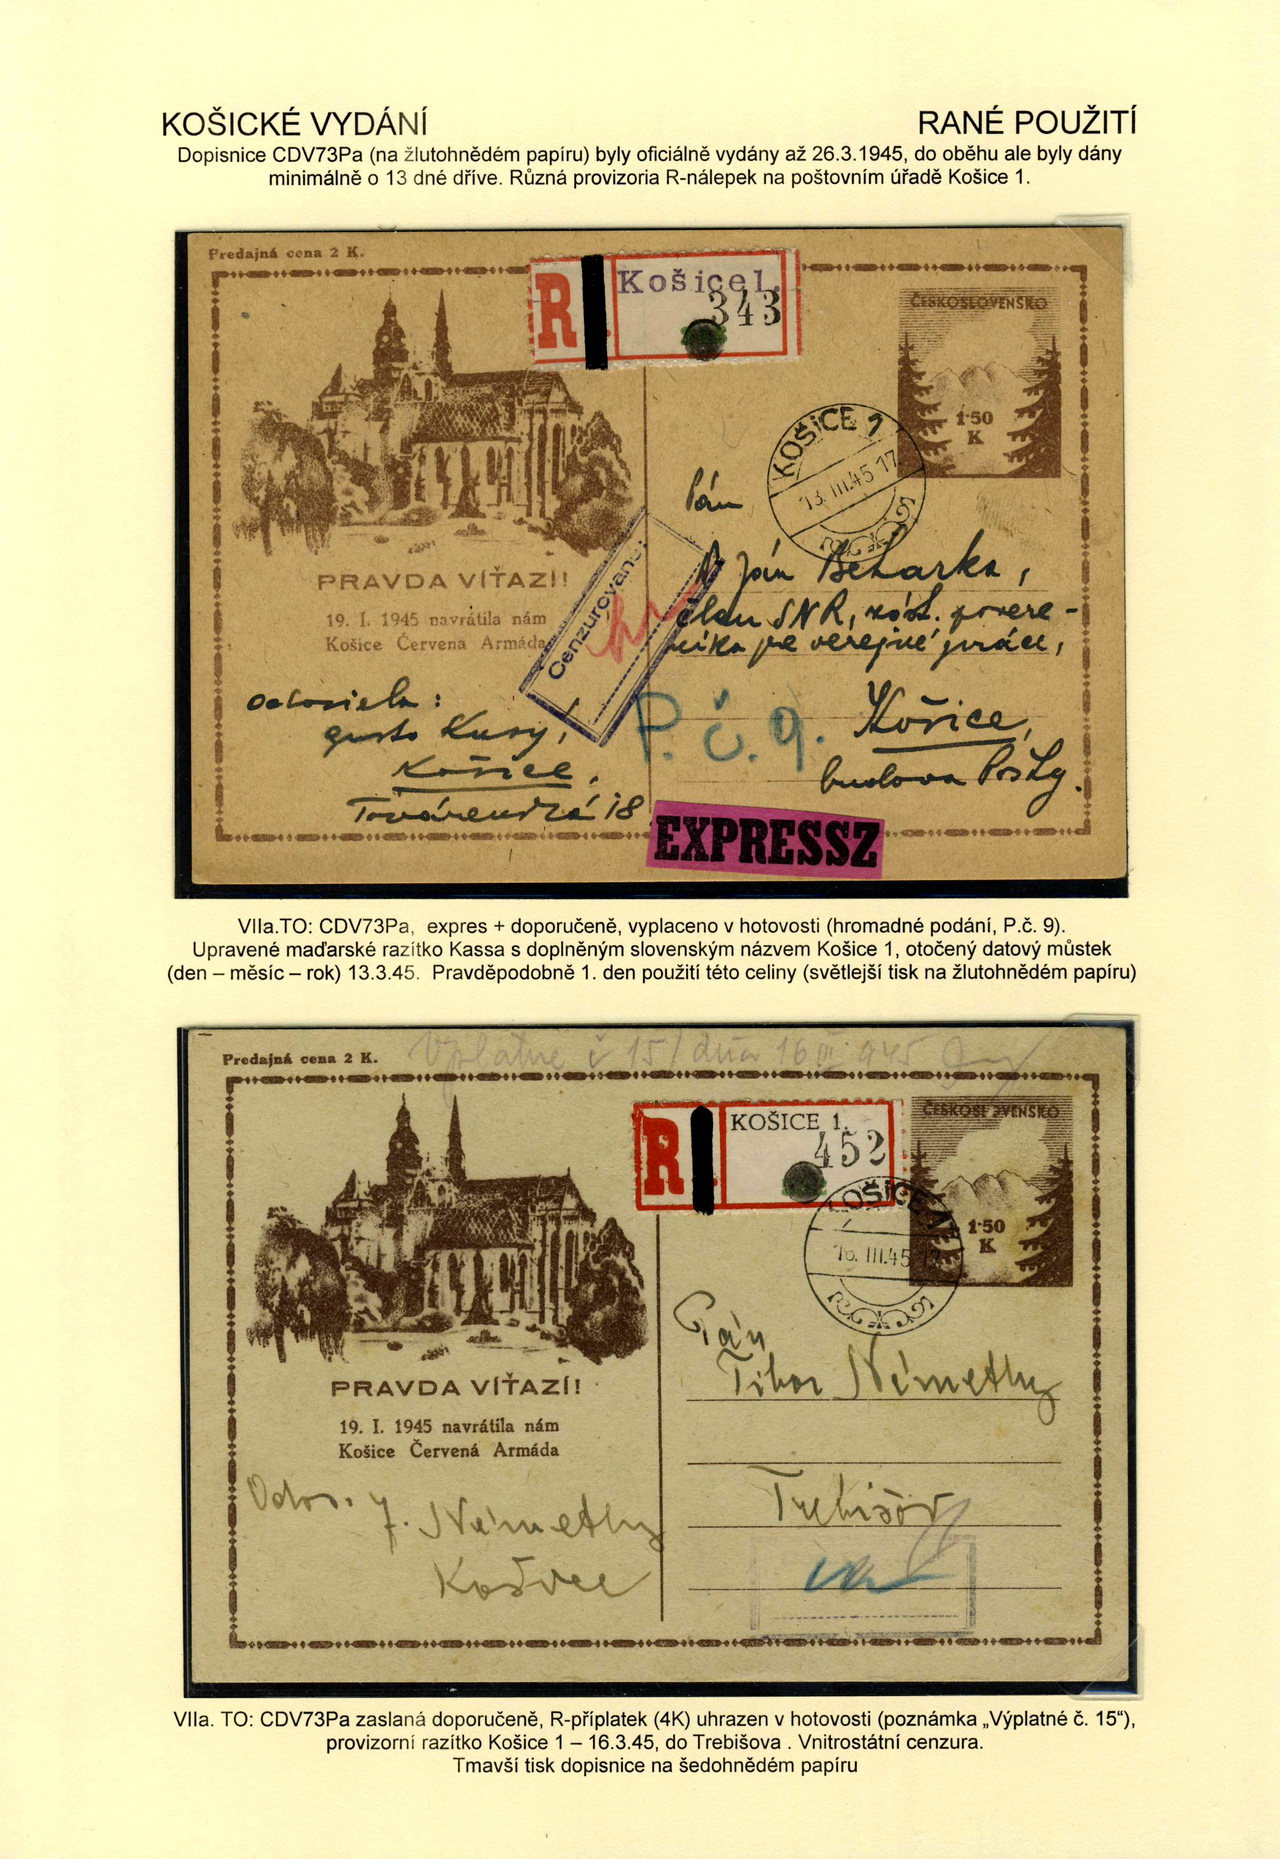 KOŠICKÉ VYDÁNÍ
RANÉ POUŽITÍ
Dopisnice CDV73Pa (na žlutohnědém papíru) byly oficiálně vydány až 26.3.1945, do oběhu ale byly dány
minimálně o 13 dné dříve. Různá provizoria R-nálepek na poštovním úřadě Košice 1.
Predajná cena 2 K.
R
Košice1.
343
ČESKOSLOVENSKO
1·50
K
KOŠICE 1
13. III.45 17
PRAVDA VÍŤAZÍ!
19. I. 1945 navrátila nám
Košice Červená Armáda
Cenzurované:
Pán
Ján Bečarka,
člen SNR,
verejné práce,
Košice,
budova Pošty.
P. č. 9.
Odosiela:
Gusto Kusy,
Košice,
18
EXPRESSZ
VIIa.TO: CDV73Pa, expres + doporučeně, vyplaceno v hotovosti (hromadné podání, P.č. 9).
Upravené maďarské razítko Kassa s doplněným slovenským názvem Košice 1, otočený datový můstek
(den – měsíc – rok) 13.3.45. Pravděpodobně 1. den použití této celiny (světlejší tisk na žlutohnědém papíru)
Predajná cena 2 K.
Výplatne č 15/ dňa 16 III 945
R
KOŠICE 1.
452
ČESKOSLOVENSKO
1·50
K
KOŠICE 1
16. III.45 17
PRAVDA VÍŤAZÍ!
19. I. 1945 navrátila nám
Košice Červená Armáda
Pán
Tibor Némethy
Trebišov
Odos. J. Némethy
Košice
VIIa. TO: CDV73Pa zaslaná doporučeně, R-příplatek (4K) uhrazen v hotovosti (poznámka „Výplatné č. 15“),
provizorní razítko Košice 1 – 16.3.45, do Trebišova . Vnitrostátní cenzura.
Tmavší tisk dopisnice na šedohnědém papíru